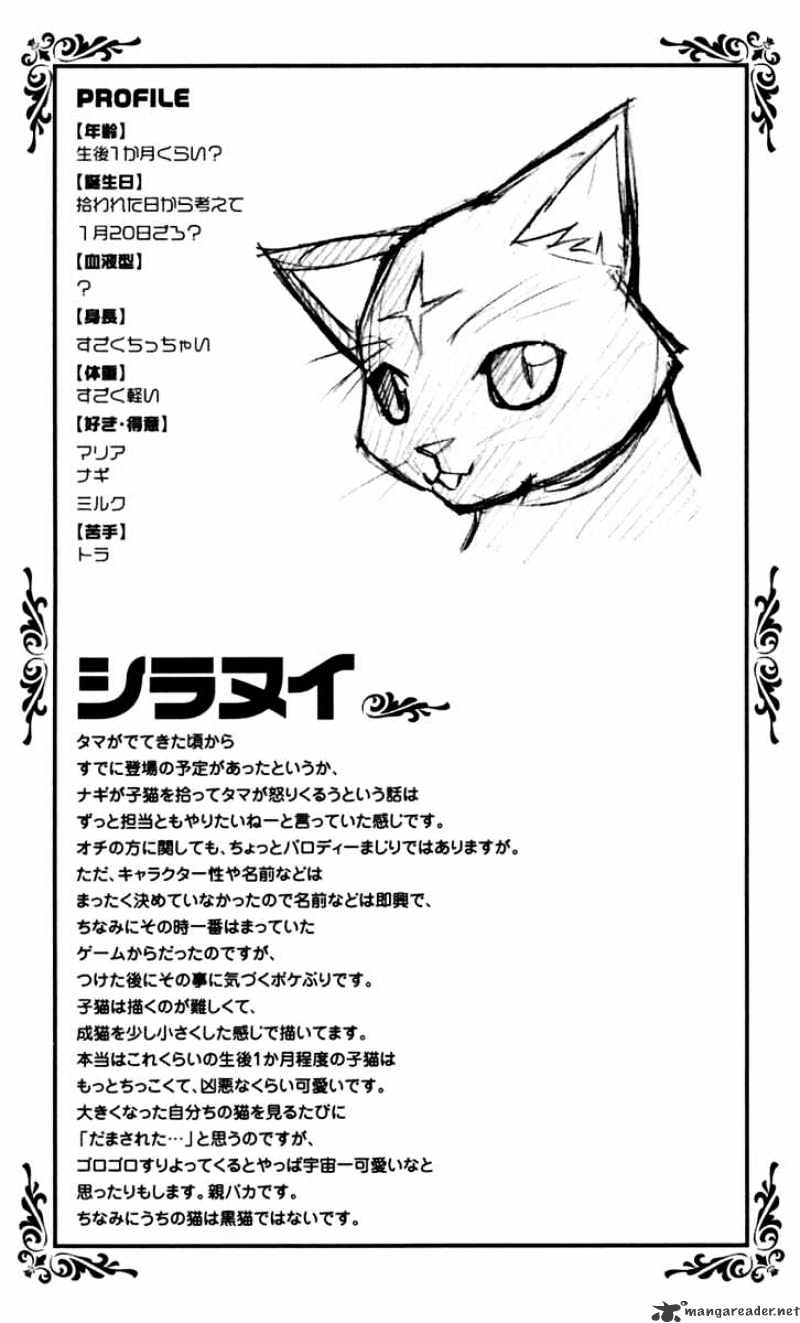 PROFILE
【年齢】
生後1か月くらい？
【誕生日】
拾われた日から考えて
1月20日ごろ？
【血液型】
？
【身長】
すごくちっちゃい
【体重】
すごく軽い
【好き・得意】
マリア
ナギ
ミルク
【苦手】
トラ
シラヌイ
タマがでてきた頃から
すでに登場の予定があったというか、
ナギが子猫を拾ってタマが怒りくるうという話は
ずっと担当ともやりたいねーと言っていた感じです。
オチの方に関しても、ちょっとパロディーまじりではありますが。
ただ、キャラクター性や名前などは
まったく決めていなかったので名前などは即興で、
ちなみにその時一番はまっていた
ゲームからだったのですが、
つけた後にその事に気づくボケぶりです。
子猫は描くのが難しくて、
成猫を少し小さくした感じで描いてます。
本当はこれくらいの生後1か月程度の子猫は
もっとちっこくて、凶悪なくらい可愛いです。
大きくなった自分ちの猫を見るたびに
「だまされた…」と思うのですが、
ゴロゴロすりよってくるとやっぱ宇宙一可愛いなと
思ったりもします。親バカです。
ちなみにうちの猫は黒猫ではないです。
mangareader.net